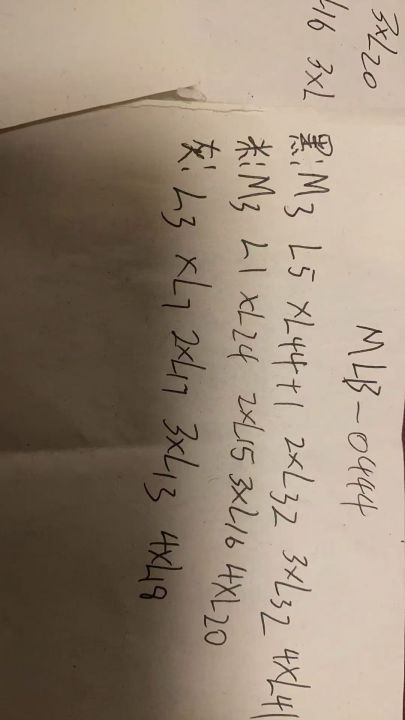 3XL20
L16 3XL
MLB-0444
黑: M3 L5 XL44+1 2XL32 3XL32 4XL41
米: M3 L1 XL24 2XL15 3XL16 4XL20
灰: L3 XL7 2XL17 3XL13 4XL19